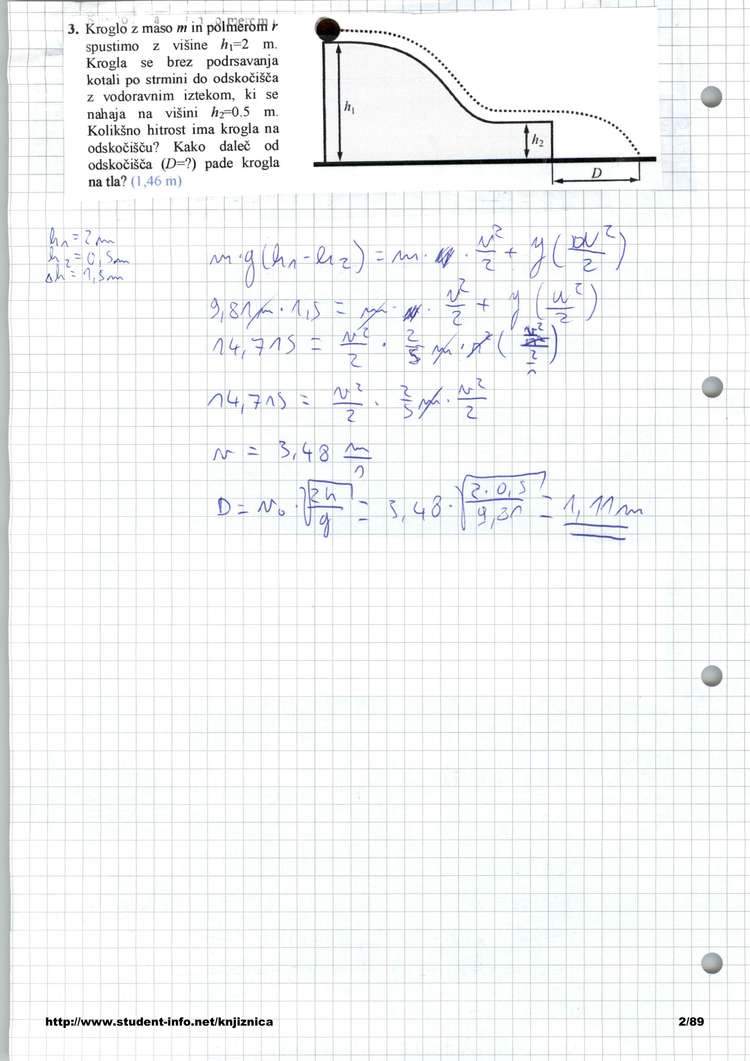 3. Kroglo z maso m in polmerom r
spustimo z višine h₁=2 m.
Krogla se brez podrsavanja
kotali po strmini do odskočišča
z vodoravnim iztekom, ki se
nahaja na višini h₂=0.5 m.
Kolikšno hitrost ima krogla na
odskočišču? Kako daleč od
odskočišča (D=?) pade krogla
na tla? (1,46 m)
h₁
h₂
D
h₁ = 2m
h₂ = 0,5m
Δh = 1,5m
m·g(h₁-h₂) = m · v²/2 + J(
9,81m · 1,5 = m · v²/2 + J(
14,715 = v²/2 · 2/5 m · r² (
14,715 = v²/2 · 2/5 m · v²/2
v = 3,48 m/s
D = v₀ · √(2h/g) = 3,48 · √(2·0,5/9,81) = 1,11m
http://www.student-info.net/knjiznica
2/89